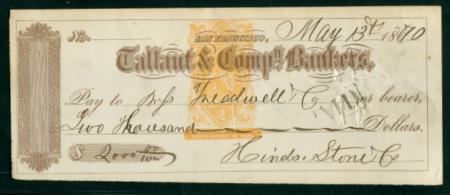 No.
SAN FRANCISCO, May 13th 1870
Tallant & Compy. Bankers,
Pay to Messs Treadwell & Co or bearer,
Two thousand Dollars.
$ 2000 00/100 Hinds. Stone & Co